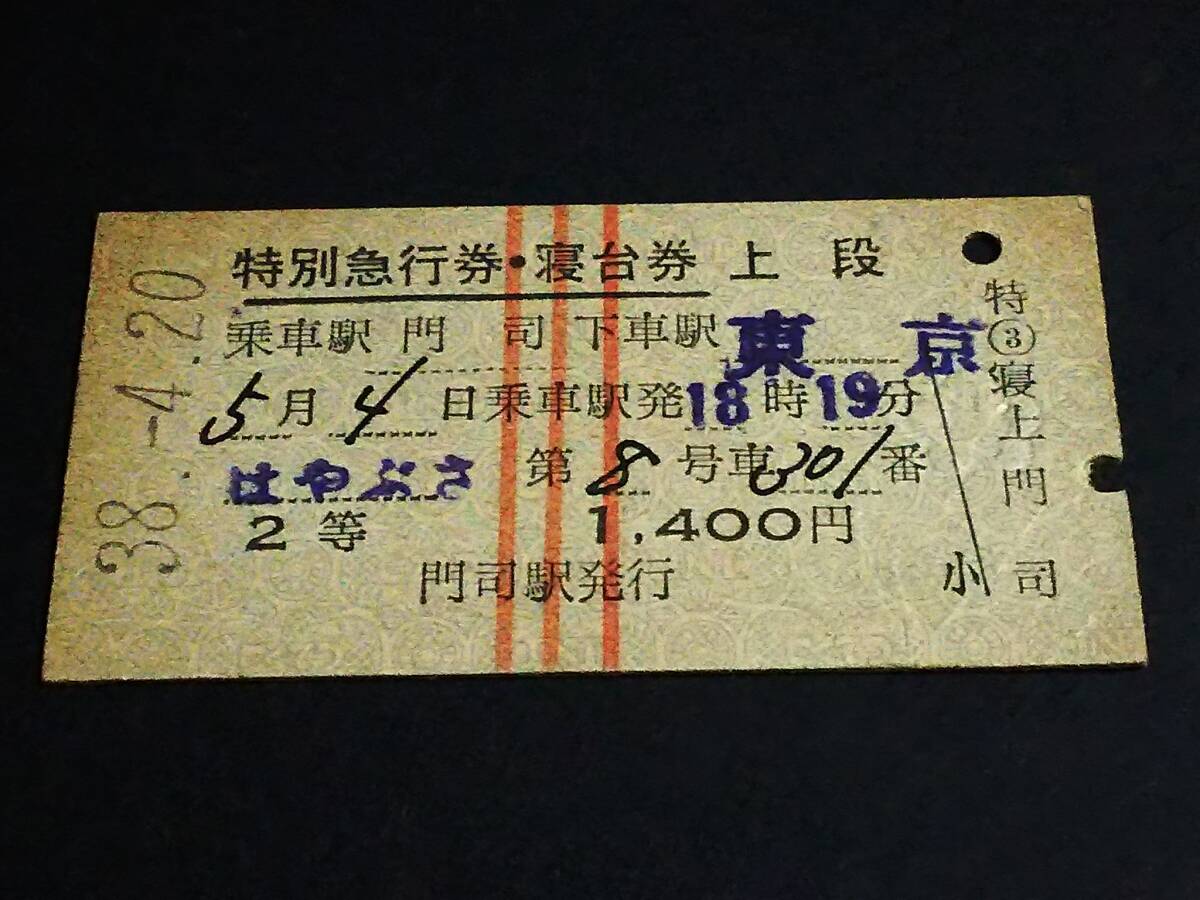 38.-4.20
特別急行券・寝台券 上段
乗車駅 門司 下車駅 東京
5月4日乗車駅発18時19分
はやぶさ 第8号車 301番
2等 1,400円
門司駅発行
特③寝上門司
小